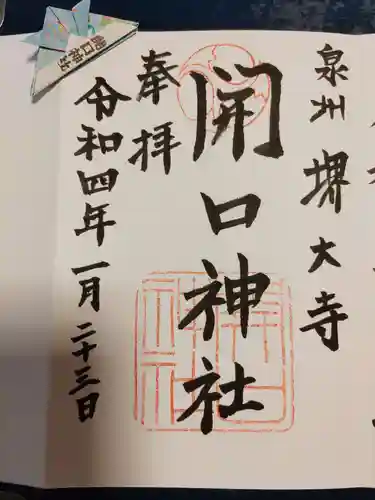 泉州 堺大寺
開口神社
奉拝
令和四年一月二十三日
開口神社